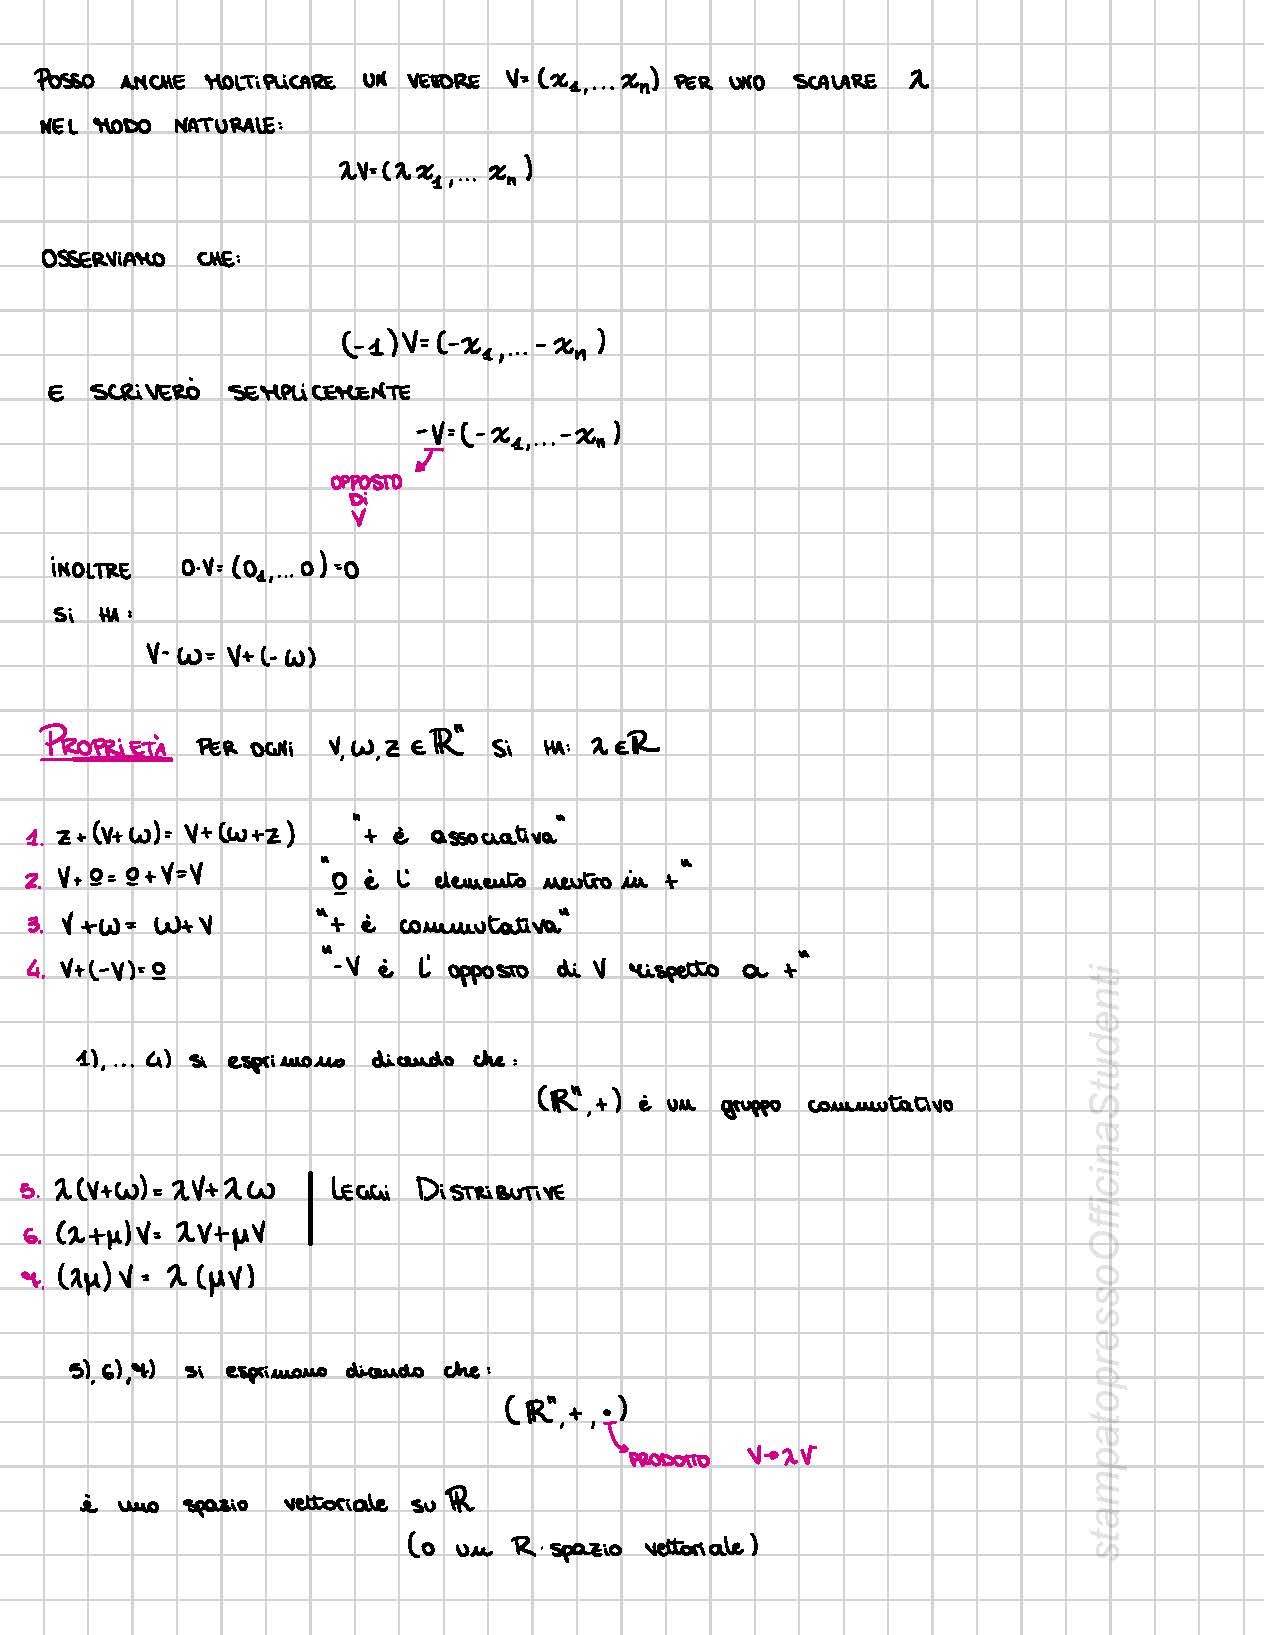 POSSO ANCHE MOLTIPLICARE UN VETTORE V=(x₁,...xₙ) PER UNO SCALARE λ
NEL MODO NATURALE:
λV=(λx₁,...xₙ)
OSSERVIAMO CHE:
(-1)V=(-x₁,...-xₙ)
E SCRIVERÒ SEMPLICEMENTE
-V=(-x₁,...-xₙ)
OPPOSTO
Di
V
iNOLTRE 0·V=(0₁,...0)=0
Si HA:
V-ω=V+(-ω)
PROPRIETÀ PER OGNi V,ω,Z∈ℝⁿ Si HA: λ∈ℝ
1. Z+(V+ω)=V+(ω+Z) "+ è associativa"
2. V+0=0+V=V "0 è l'elemento neutro in +"
3. V+ω=ω+V "+ è commutativa"
4. V+(-V)=0 "-V è l'opposto di V rispetto a +"
1),...4) si esprimono dicendo che:
(ℝⁿ,+) è un gruppo commutativo
5. λ(V+ω)=λV+λω LEGGi DiSTRiBUTiVE
6. (λ+μ)V=λV+μV
7. (λμ)V=λ(μV)
5),6),7) si esprimono dicendo che:
(ℝⁿ,+,·)
PRODOTTO V→λV
è uno spazio vettoriale su ℝ
(o un R·spazio vettoriale)
stampatopressoOfficinaStudenti